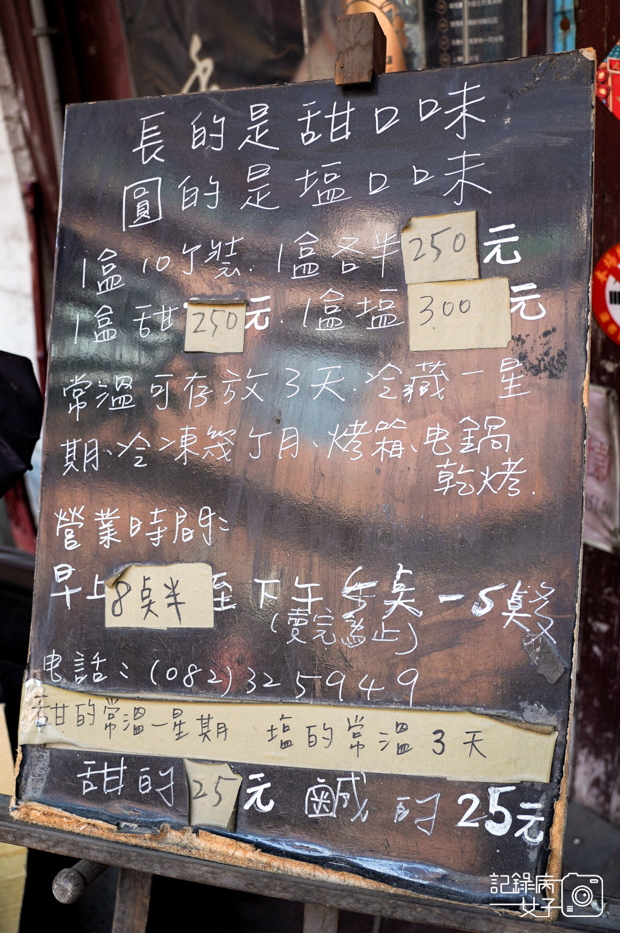 長的是甜口口味
圓的是塩口口味
1盒10个裝.1盒各半250元
1盒甜250元.1盒塩300元
常溫可存放3天.冷藏一星
期、冷凍幾个月、烤箱、电鍋
乾烤.
營業時間:
早上8点半至下午5点-5点多
(賣完為止)
电話:(082)325949
甜的常溫一星期 塩的常溫3天
甜的25元 鹹的25元
記錄病
女子